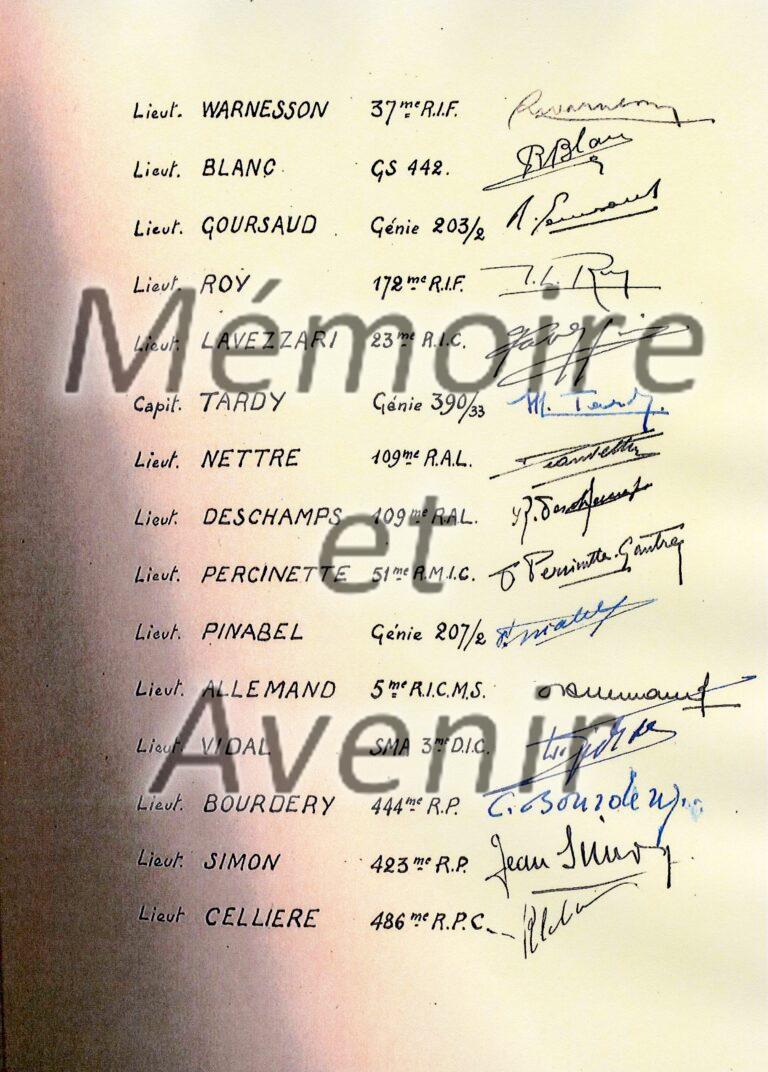 Lieut. WARNESSON 37me R.I.F.
Lieut. BLANC GS 442. RBlanc
Lieut. GOURSAUD Génie 203/2
Lieut. ROY 172me R.I.F. Roy
Mémoire
Lieut. LAVEZZARI 23me R.I.C.
Capit. TARDY Génie 390/33 M. Tardy.
Lieut. NETTRE 109me R.A.L.
Lieut. DESCHAMPS 109me R.A.L.
et
Lieut. PERCINETTE 51me R.M.I.C.
Lieut. PINABEL Génie 207/2
Lieut. ALLEMAND 5me R.I.C.M.S.
Avenir
Lieut. VIDAL SMA 3me D.I.C.
Lieut. BOURDERY 444me R.P. C. Bourdery.
Lieut. SIMON 423me R.P. Jean Simon.
Lieut CELLIERE 486me R.P.C.